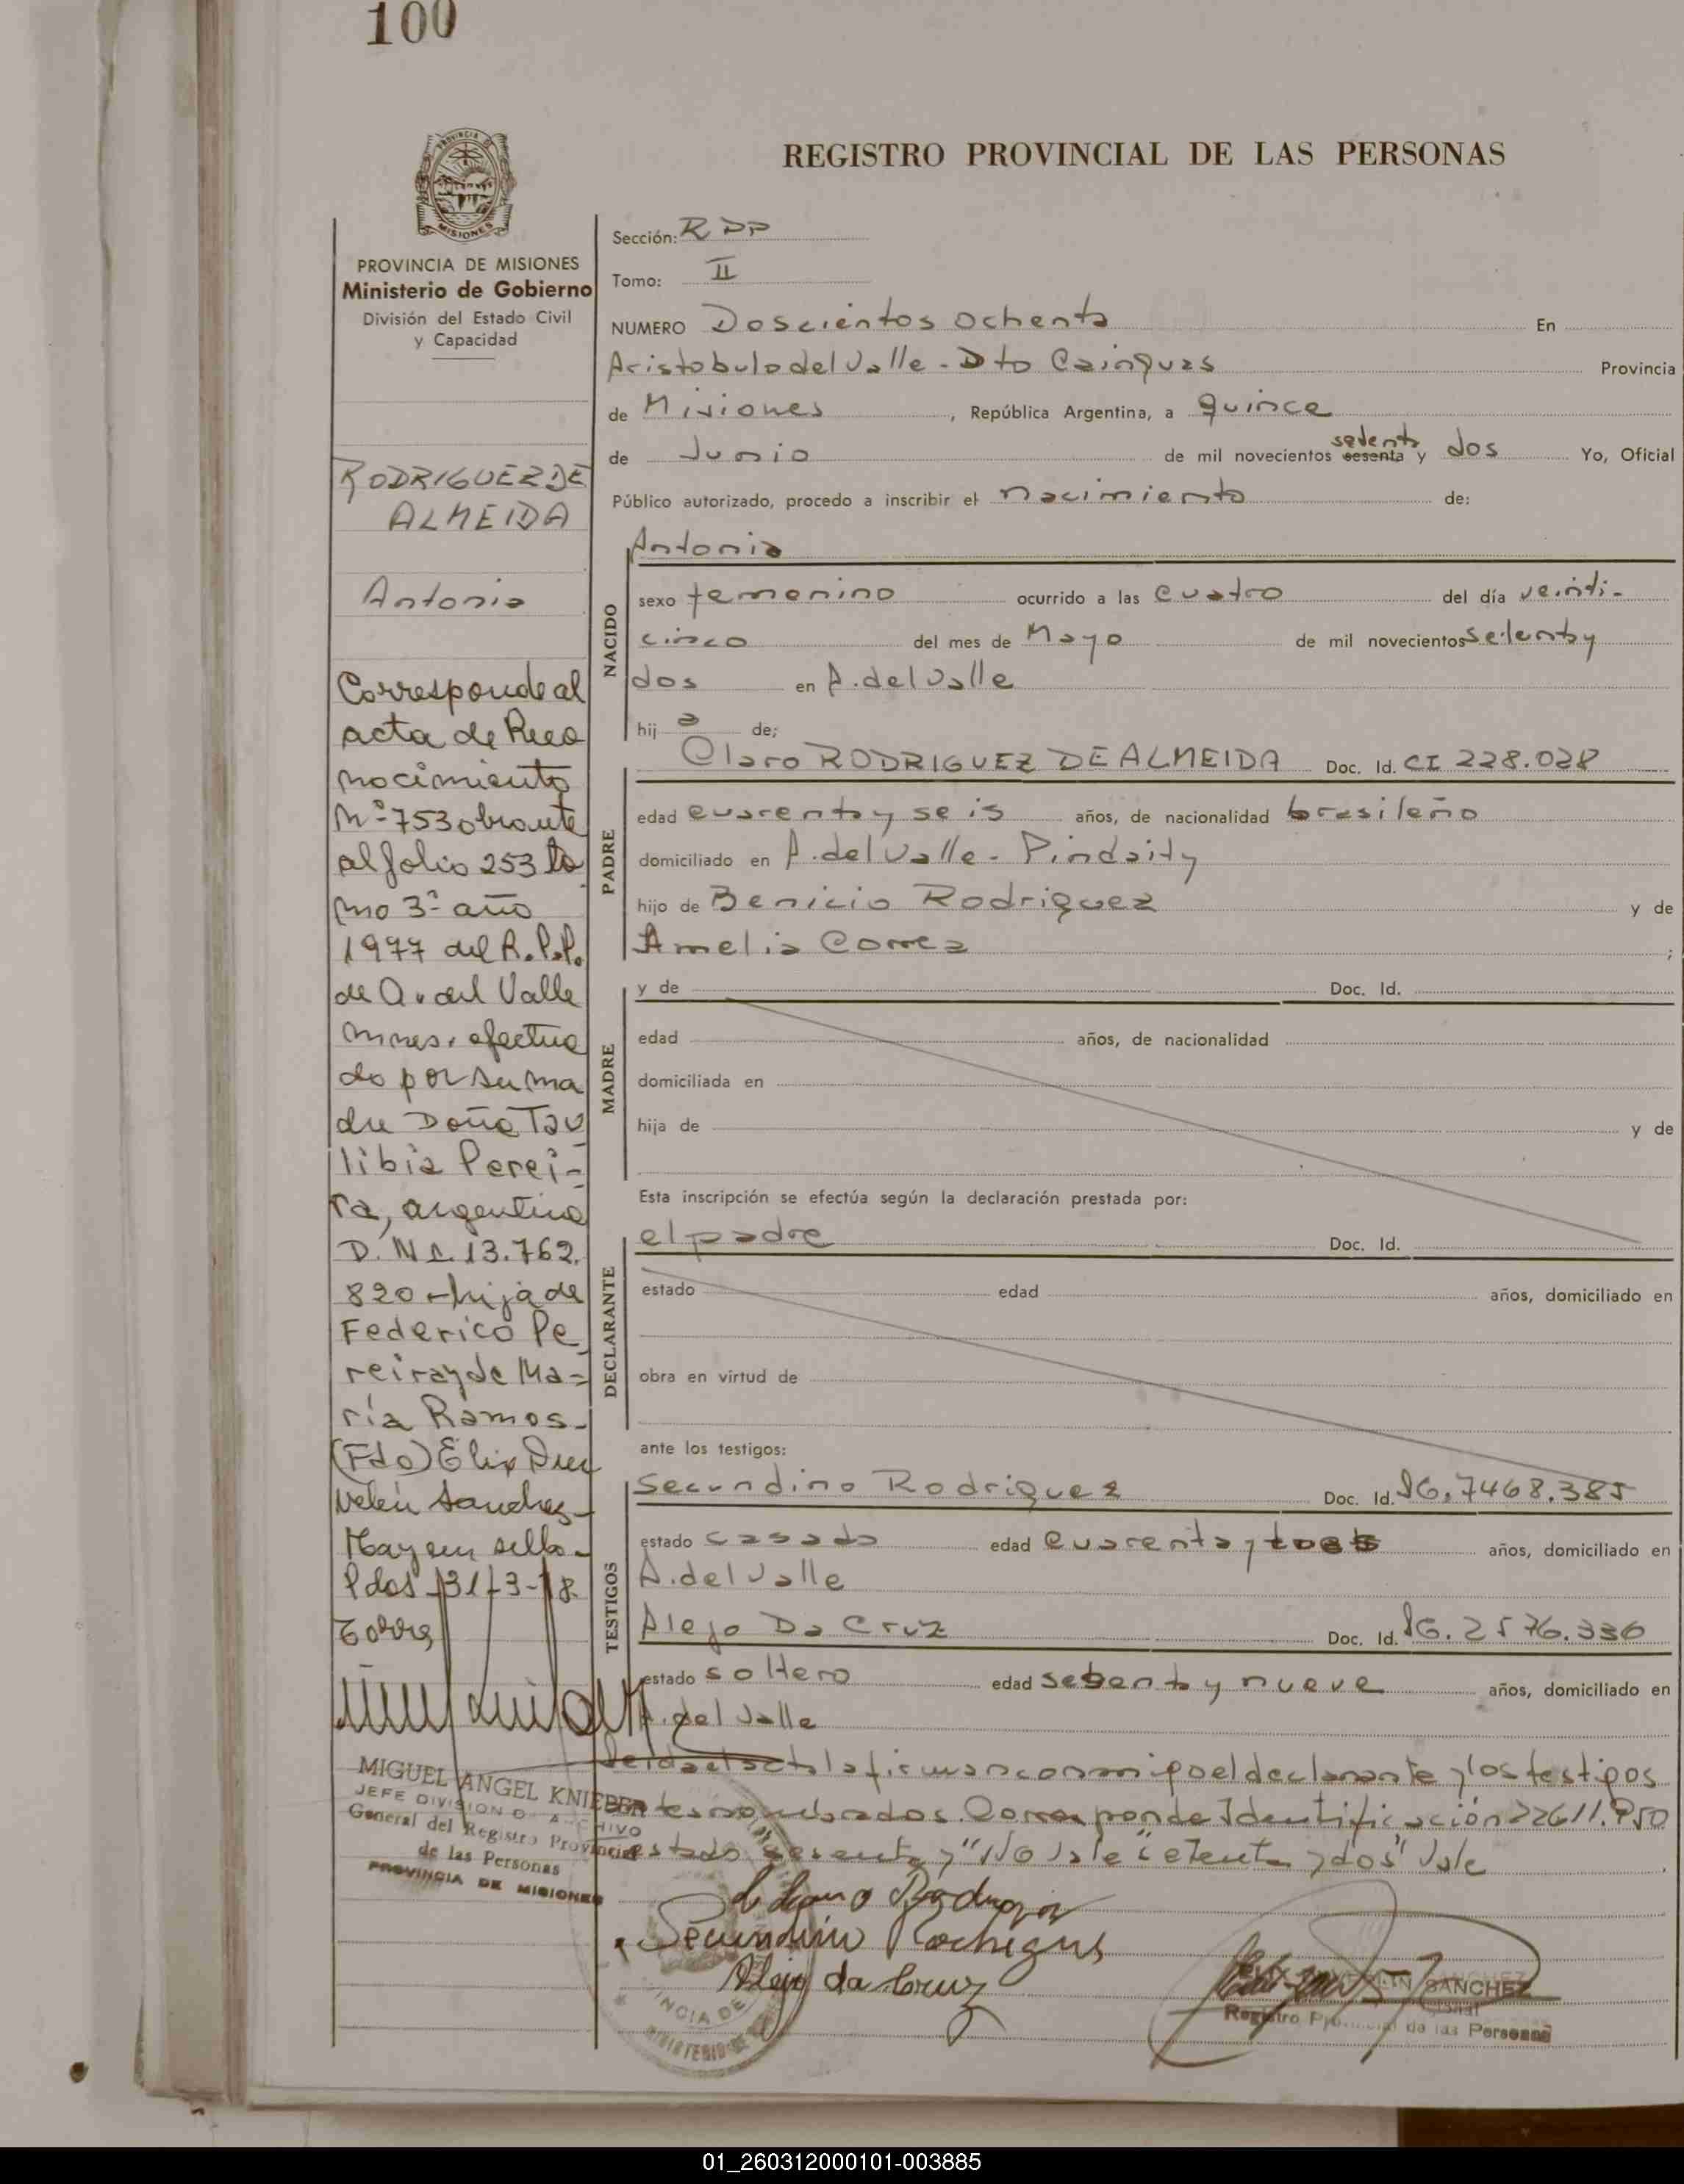 100
PROVINCIA DE
MISIONES
REGISTRO PROVINCIAL DE LAS PERSONAS
PROVINCIA DE MISIONES
Ministerio de Gobierno
División del Estado Civil
y Capacidad
RODRIGUEZ DE
ALMEIDA
Antonia
Corresponde al
acta de Reco
nocimiento
Nº 753 obrante
al folio 253 to
mo 3º año
1977 del R.P.P.
de A. del Valle
Mnes. efectua
do por su ma
dre Doña Tau
libia Perei-
ra, argentina
D.N.I. 13.762.
820 - hija de
Federico Pe
reira y de Ma-
ría Ramos.
(Fdo) Elix Duu
Velen Sanchez -
Hay un sello -
Pdas 31-3-78
Torres
MIGUEL ANGEL KNIEPER
JEFE DIVISION ARCHIVO
General del Registro Provincial
de las Personas
PROVINCIA DE MISIONES
Sección: RPP
Tomo: II
NUMERO Doscientos ochenta En
Aristobulo del Valle - Dto Cainguas Provincia
de Misiones, República Argentina, a quince
setenta
de Junio de mil novecientos sesenta y dos Yo, Oficial
Público autorizado, procedo a inscribir el nacimiento de:
NACIDO
Antonia
sexo femenino ocurrido a las cuatro del día veinti-
cinco del mes de Mayo de mil novecientos setenta y
dos en A. del Valle
hij a de;
PADRE
Claro RODRIGUEZ DE ALMEIDA Doc. Id. CI 228.028
edad cuarenta y seis años, de nacionalidad brasileño
domiciliado en A. del Valle - Pindaity
hijo de Benicio Rodriguez y de
Amelia Correa ;
MADRE
y de Doc. Id.
edad años, de nacionalidad
domiciliada en
hija de y de
Esta inscripción se efectúa según la declaración prestada por:
DECLARANTE
el padre Doc. Id.
estado edad años, domiciliado en
obra en virtud de
ante los testigos:
TESTIGOS
Secundino Rodriguez Doc. Id. 7468.385
estado casado edad cuarenta y años, domiciliado en
A. del Valle
Alejo Da Cruz Doc. Id. 2576.336
estado soltero edad setenta y nueve años, domiciliado en
A. del Valle
Leida el acta la firman conmigo el declarante y los testigos
antes nombrados. Corresponde Identificación 22611.950
testado sesenta y "No Vale" setenta y dos" Vale
Rodriguez
Secundino Rodrigues
Alejo da Cruz
SANCHEZ
Registro Provincial de las Personas
01_260312000101-003885